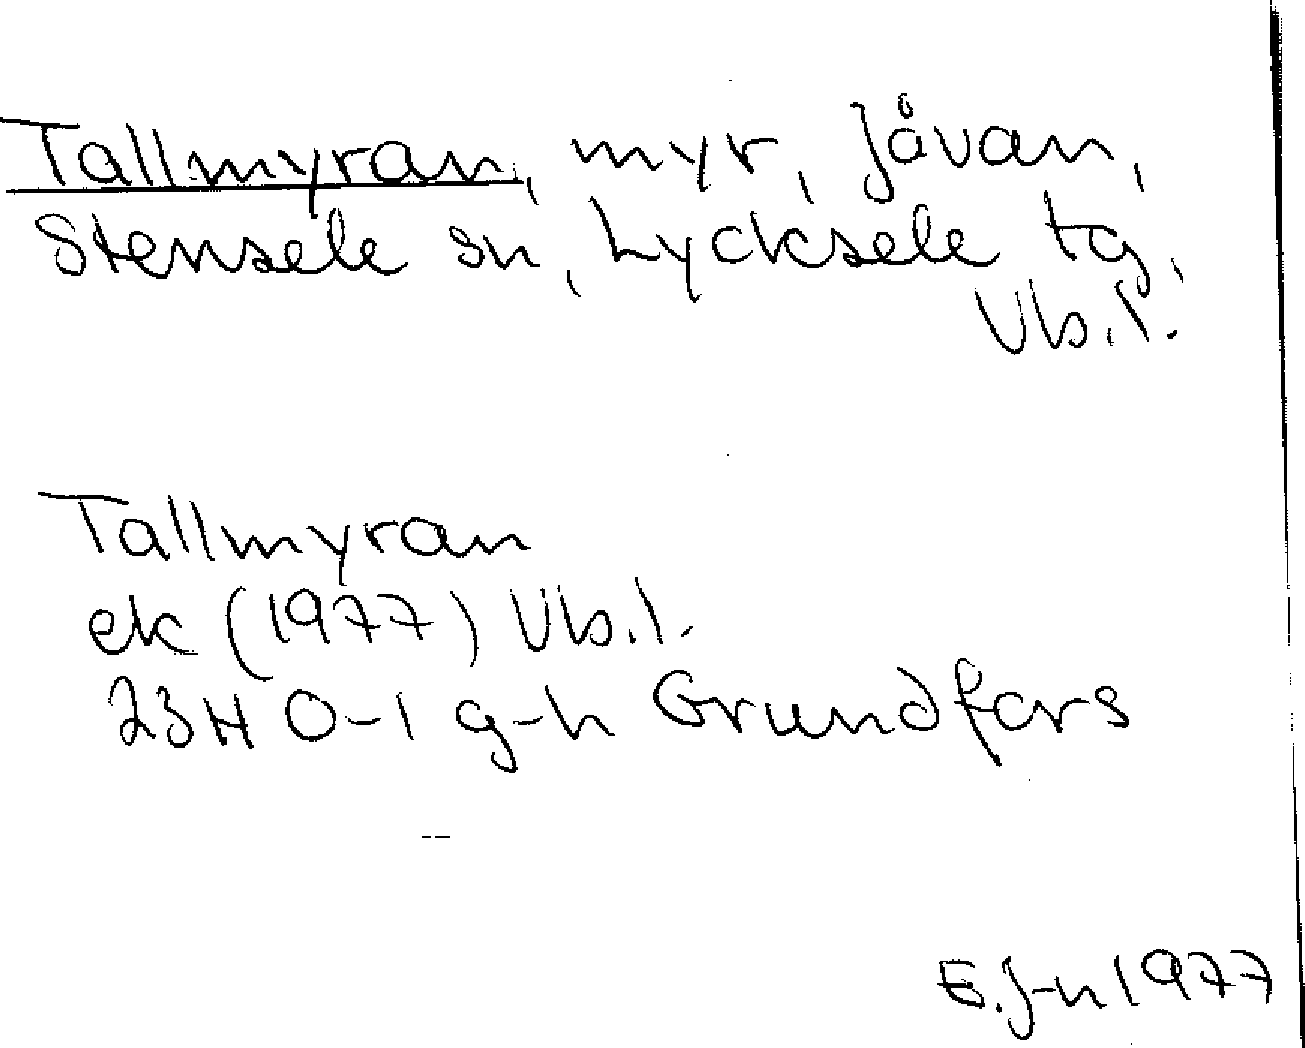 Tallmyran, myr, Jåvan,
Stensele sn, Lycksele tg,
Vb.l.
Tallmyran
ek (1977) Vb.l.
23H 0-1 g-h Grundfors
E.J-n 1977